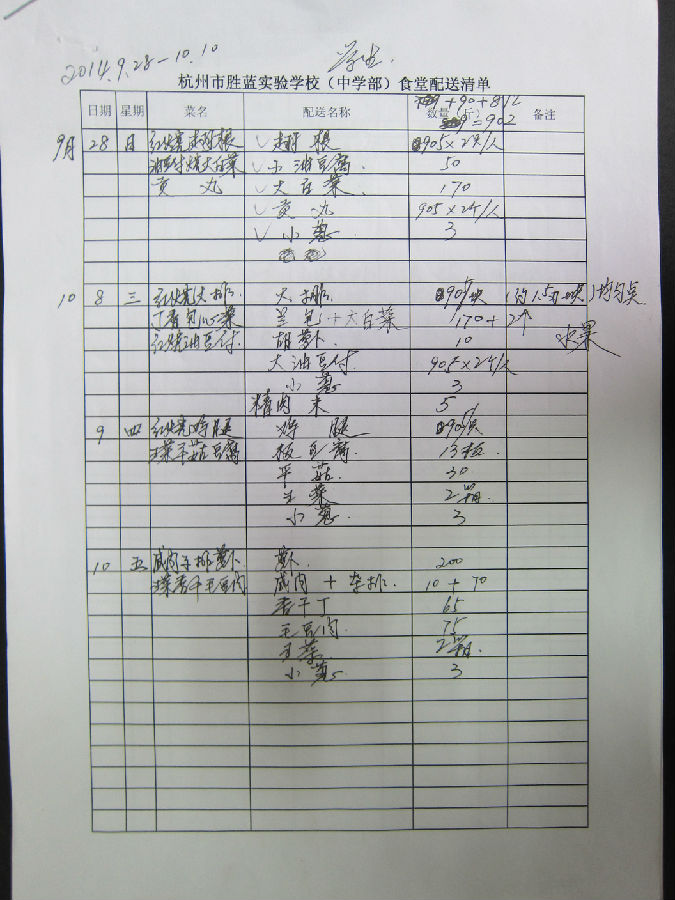 2014.9.28-10.10 学生.
杭州市胜蓝实验学校（中学部）食堂配送清单
日期 星期 菜名 配送名称 数量（斤） 备注
+90+812
=902
9月 28 日 红烧翅根 √翅根 905×2个/人
油豆付烧大白菜 √小油豆腐 50
贡丸 √大白菜. 170
√贡丸 905×2个/人
√小葱 3
10 8 三 红烧大排. 大排. 905块 (约1.5两一块)均匀点
包心菜 包+大白菜 170+2个
红烧油豆付 胡萝卜 10 水果
大油豆付 905×2个/人
小葱 3
精肉末 5
9 四 红烧鸡腿 鸡腿 905只
玉菜平菇豆腐 板豆腐 13板
平菇. 30
玉菜 2箱.
小葱. 3
10 五 咸肉子排萝卜 萝卜. 200
玉菜香干毛豆肉 咸肉+子排. 10+70
香干丁 65
毛豆肉. 75
玉菜. 2箱.
小葱. 3